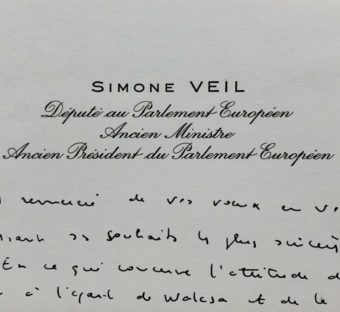 SIMONE VEIL
Député au Parlement Européen
Ancien Ministre
Ancien Président du Parlement Européen
remercié de vos voeux en
ses souhaits les plus
En ce qui concerne l'attitude
à l'égard de Walesa et de le